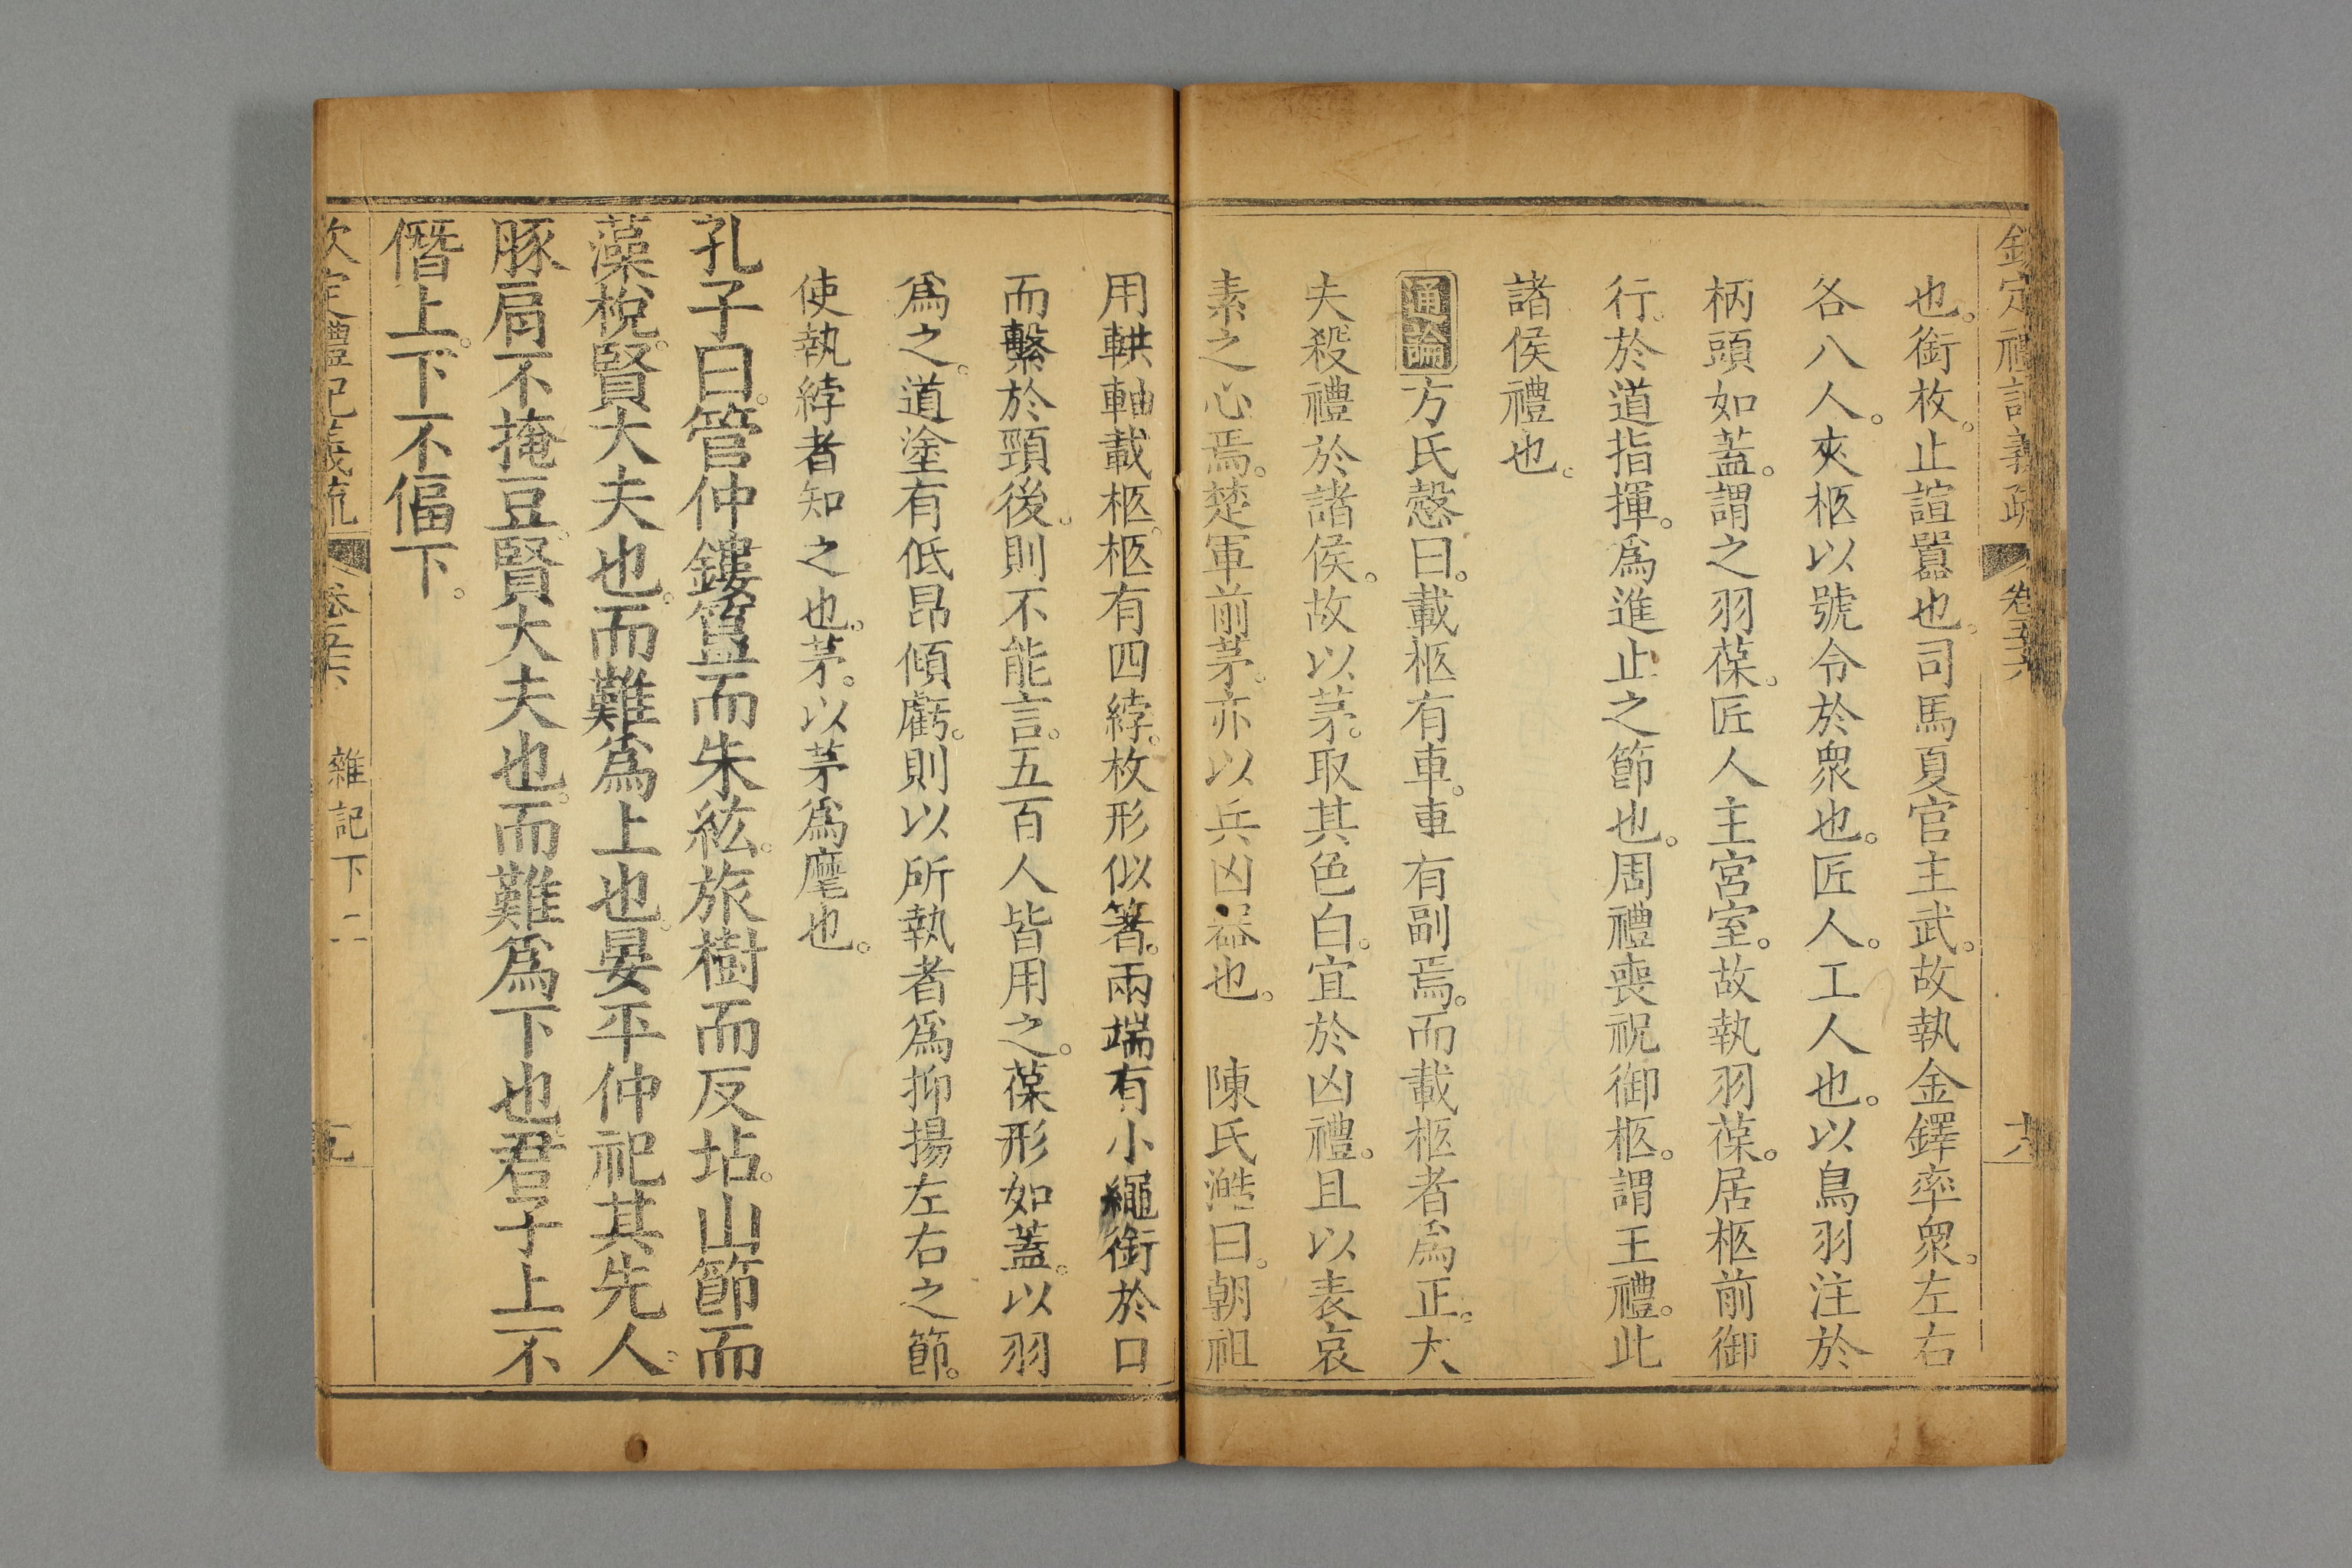 欽定禮記義疏 卷五十六 六
也。銜枚。止諠囂也。司馬夏官主武。故執金鐸率眾。左右
各八人。夾柩以號令於眾也。匠人。工人也。以鳥羽注於
柄頭如蓋。謂之羽葆。匠人主宮室。故執羽葆。居柩前御
行。於道指揮。爲進止之節也。周禮喪祝御柩。謂王禮。此
諸侯禮也。
通論方氏慤曰。載柩有車。車有副焉。而載柩者爲正。大
夫殺禮於諸侯。故以茅。取其色白。宜於凶禮。且以表哀
素之心焉。楚軍前茅。亦以兵凶器也。 陳氏澔曰。朝祖
用輁軸載柩。柩有四綍。枚形似箸。兩端有小繩。銜於口
而繫於頸後。則不能言。五百人皆用之。葆形如蓋。以羽
爲之。道塗有低昂傾虧。則以所執者爲抑揚左右之節。
使執綍者知之也。茅。以茅爲麾也。
孔子曰。管仲鏤簋而朱紘。旅樹而反坫。山節而
藻梲。賢大夫也。而難爲上也。晏平仲祀其先人。
豚肩不掩豆。賢大夫也。而難爲下也。君子上不
僭上。下不偪下。
欽定禮記義疏 卷五十六 雜記下二